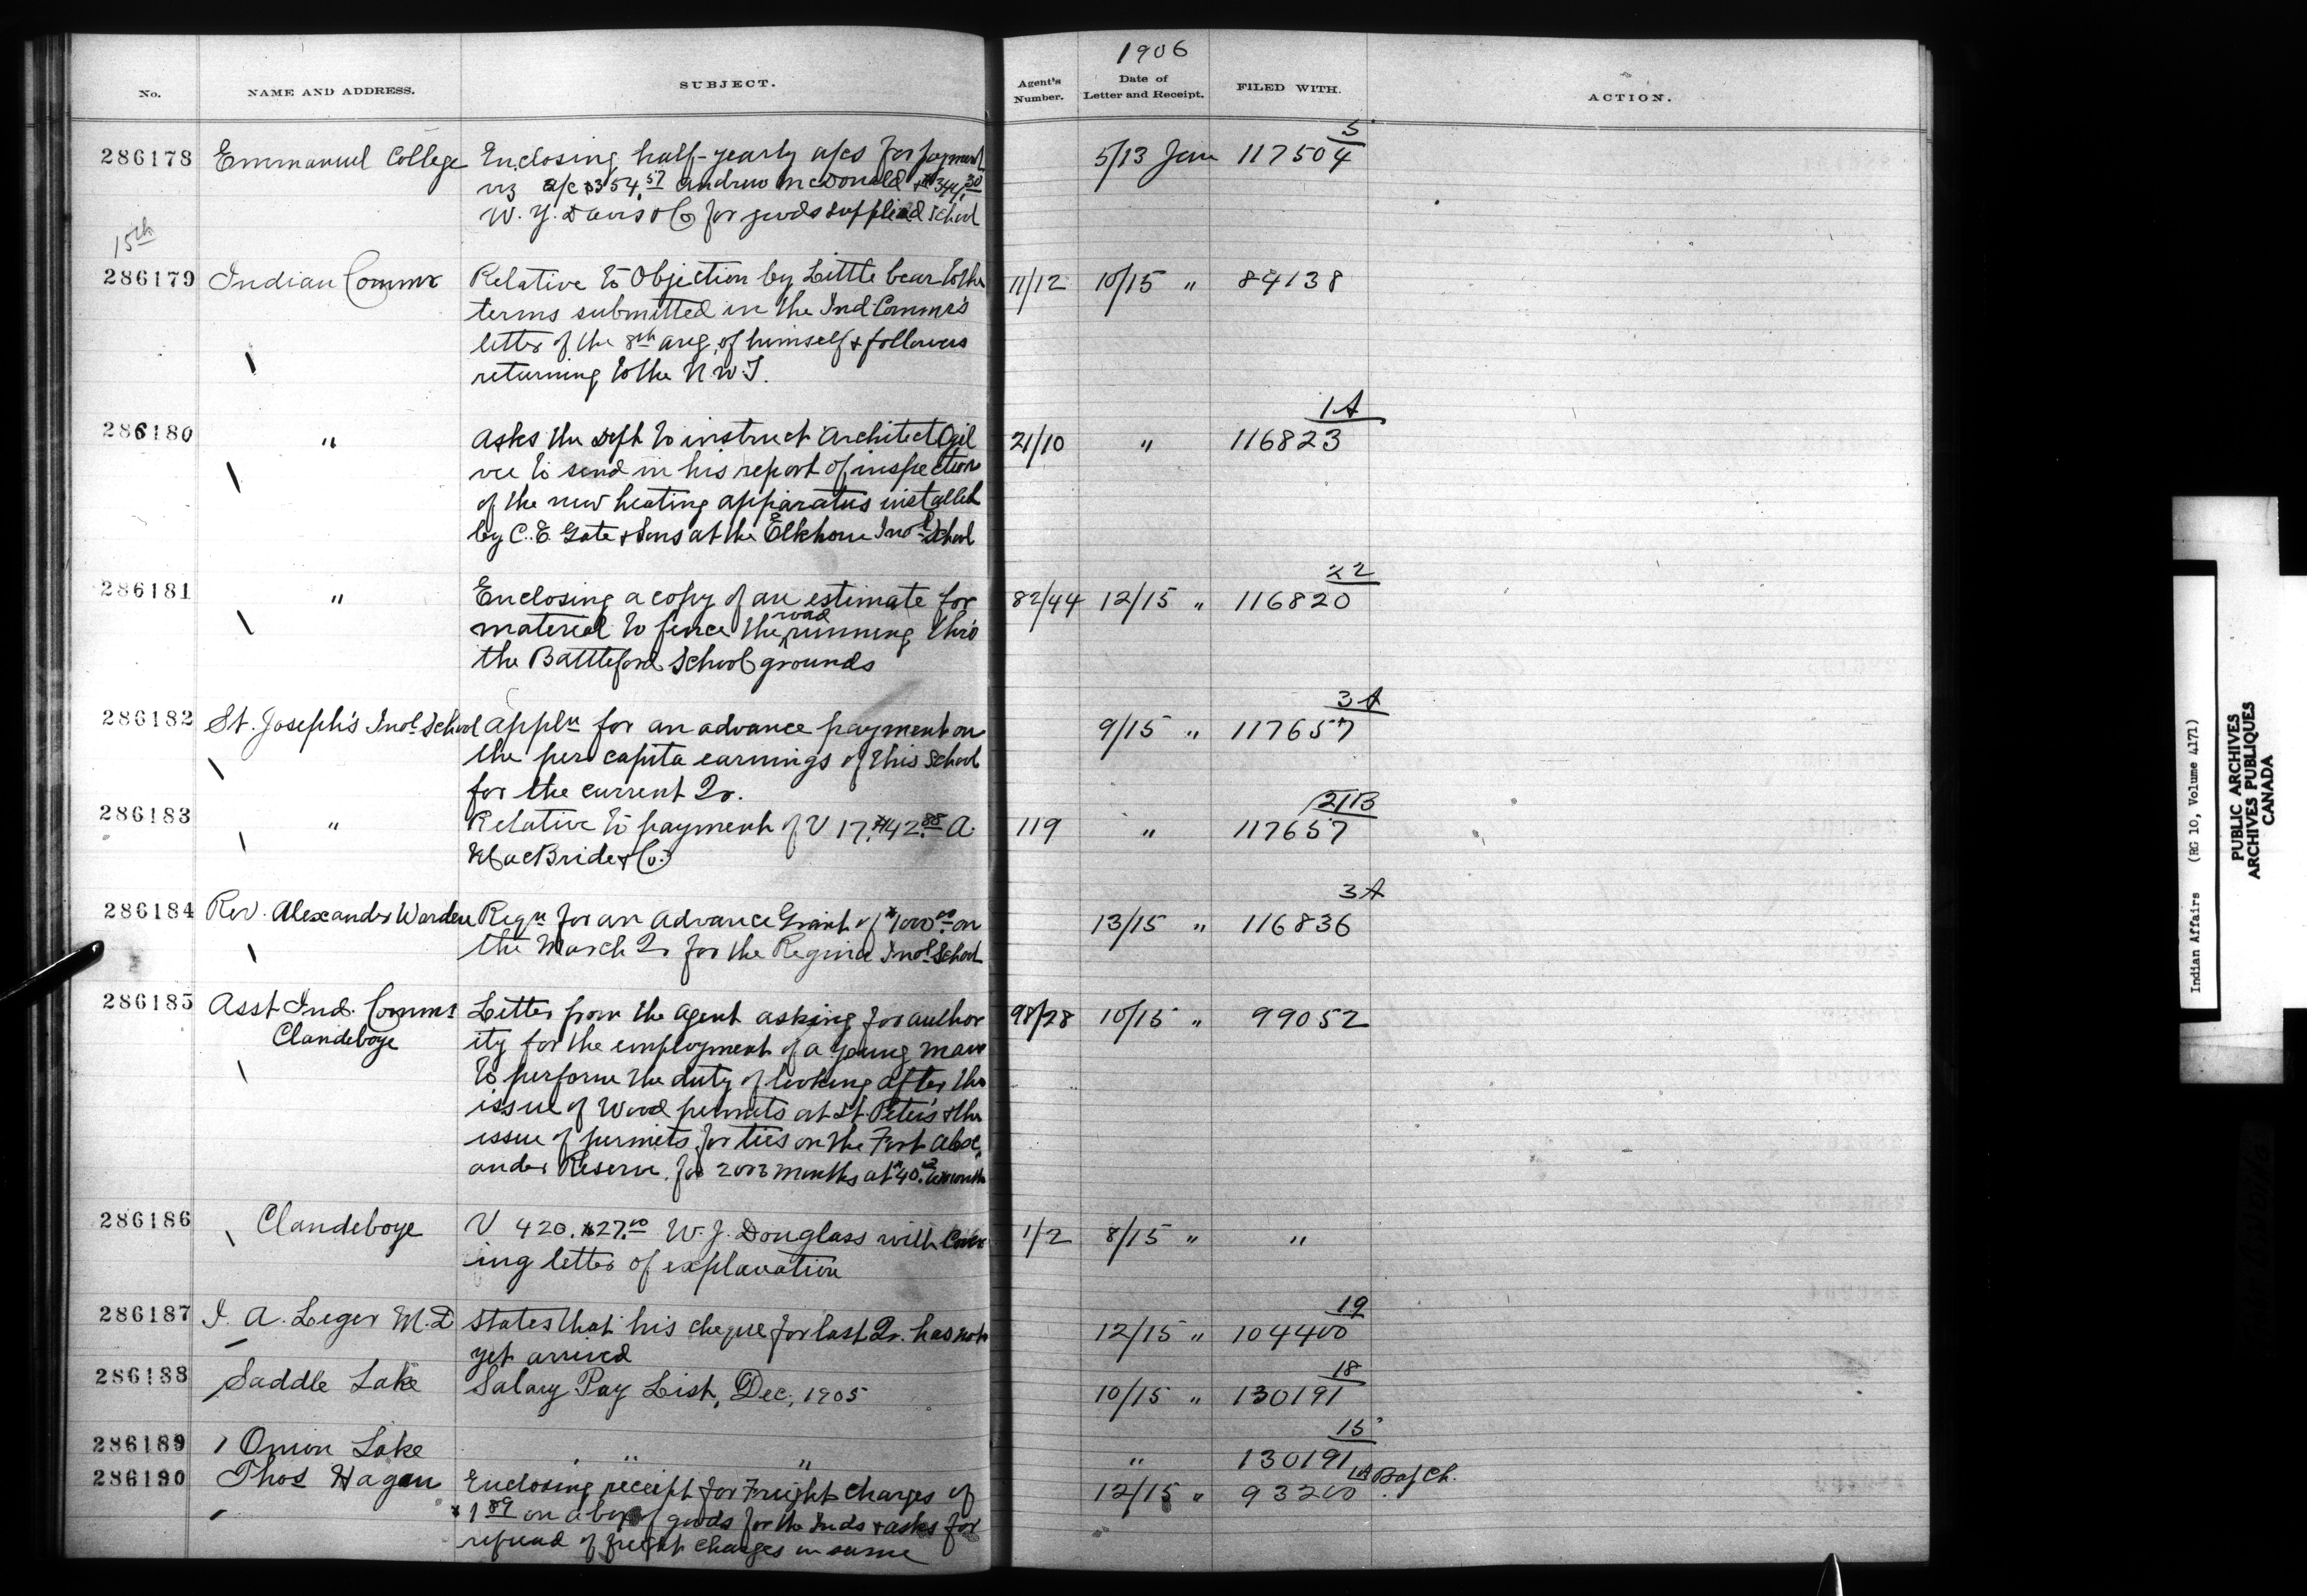 1906
No. NAME AND ADDRESS. SUBJECT. Agent's Number. Date of Letter and Receipt. FILED WITH. ACTION.
5
286178 Emmanuel College Enclosing half-yearly a/cs for payment 5/13 Jan 117504
viz a/c $354.57 Andrew McDonald & $344.30
W. J. Davis & Co for goods supplied School
15th
286179 Indian Commr Relative to Objection by Little bear to the 11/12 10/15 " 84138
terms submitted in the Ind Commr's
letter of the 8th Aug, of himself & followers
returning to the N.W.T.
1A
286180 " Asks the Dept to instruct Architect Ogil 21/10 " 116823
vie to send in his report of inspection
of the new heating apparatus installed
by C. E. Gate & Sons at the Elkhorn Indl School
22
286181 " Enclosing a copy of an estimate for 82/44 12/15 " 116820
material to fence the road running thro
the Battleford School grounds
3A
286182 St. Joseph's Indl School Appln for an advance payment on 9/15 " 117657
the per capita earnings of this School
for the current Qr.
21B
286183 " Relative to payment of V 17, $42.88 A. 119 " 117657
MacBride & Co.
3A
286184 Rev. Alexander Warden Reqn for an advance Grant of $1000.00 on 13/15 " 116836
the March Qr for the Regina Indl School
286185 Asst Ind. Commr Letter from the Agent asking for author 98/28 10/15 " 99052
Clandeboye ity for the employment of a young man
to perform the duty of looking after the
issue of Wood permits at St. Peter's & the
issue of permits for ties on the Fort Alex
ander Reserve, for 2 or 3 months at $40. a month
286186 Clandeboye V 420. $27.00 W. J. Douglass with Cover 1/2 8/15 " "
ing letter of explanation
19
286187 I. A. Leger M.D States that his cheque for last Qr. has not 12/15 " 104400
yet arrived
18
286188 Saddle Lake Salary Pay List, Dec, 1905 10/15 " 130191
15
286189 Onion Lake " " " 130191
286190 Thos Hagan Enclosing receipt for Freight Charges of 12/15 " 93200 1A Baf Ch.
$1.89 on a box of goods for the Inds & asks for
refund of freight charges on same
Indian Affairs (RG 10, Volume 4171)
PUBLIC ARCHIVES
ARCHIVES PUBLIQUES
CANADA